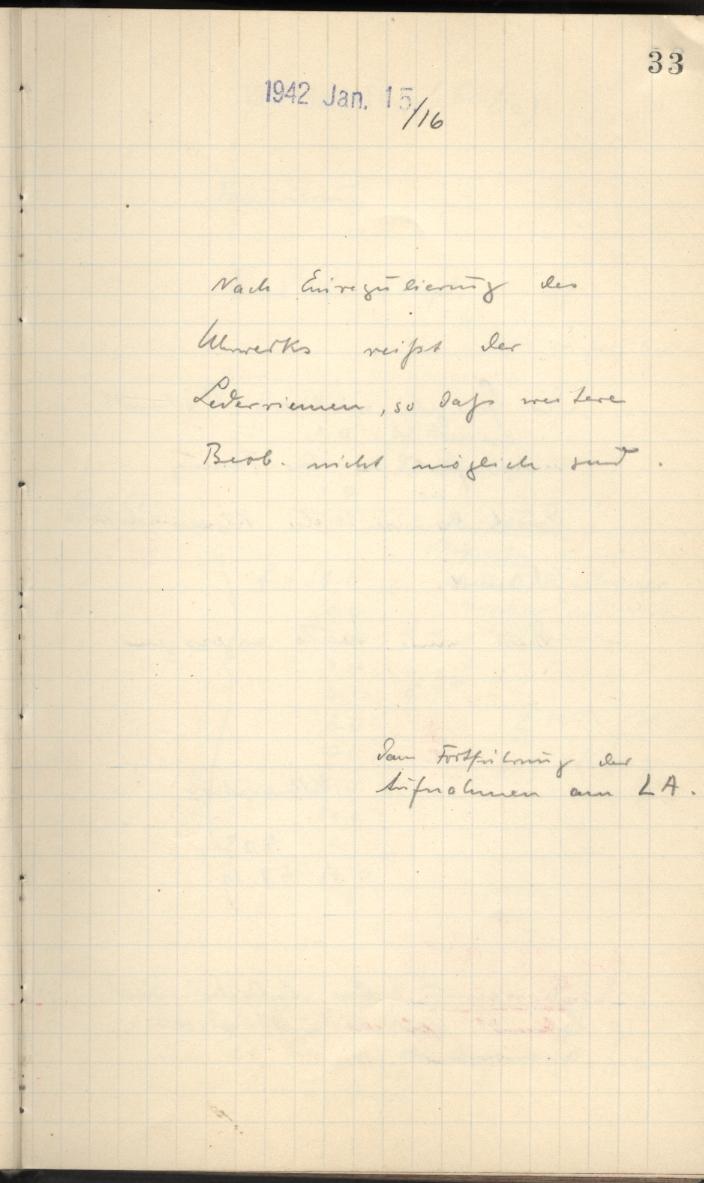 33
1942 Jan. 15/16
Nach Einregulierung des
Uhrwerks reißt der
Lederriemen, so daß weitere
Beob. nicht möglich sind.
Dann Fortführung der
Aufnahmen am LA.